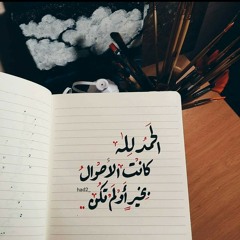 الحمد لله
كانت الأحوال
بخيرٍ أو لم تكن ..
had2_